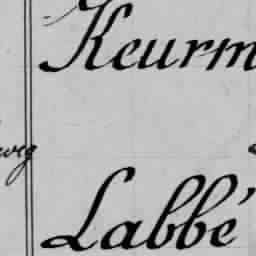 Keurm
Labbé